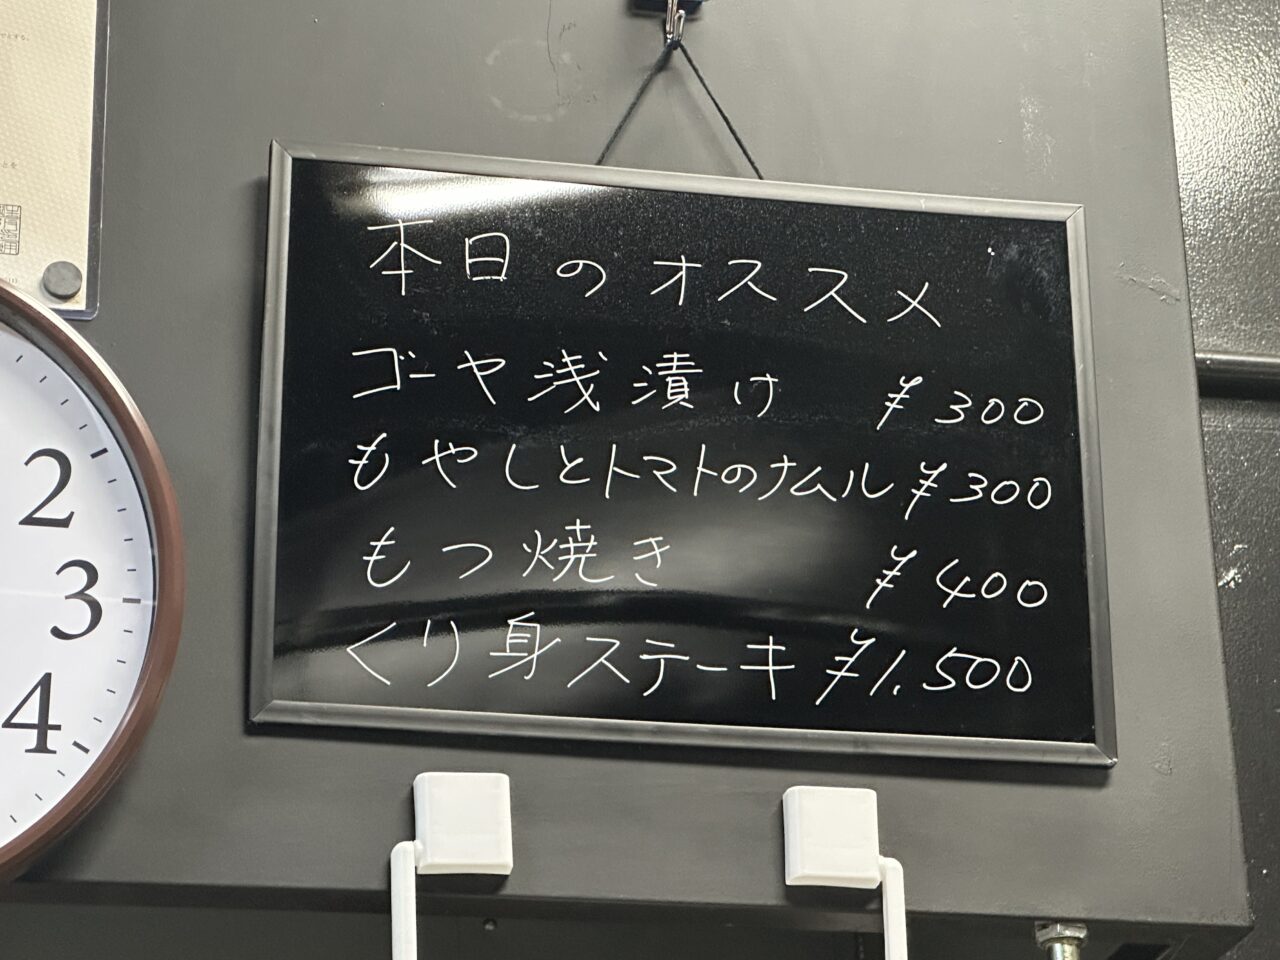 本日のオススメ
ゴーヤ浅漬け ¥300
もやしとトマトのナムル ¥300
もつ焼き ¥400
くり身ステーキ ¥1.500
2
3
4